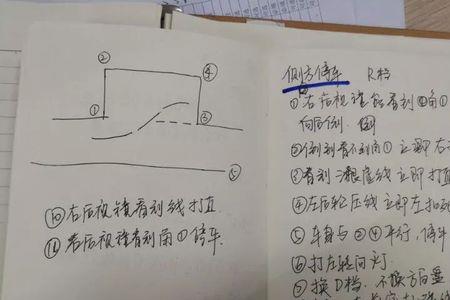 ②
④
①
③
⑤
⑩右后视镜看到线打直
⑪右后视镜看到角①停车.
侧方停车 R档
①右后视镜能看到②角①
向后倒.
②倒到看不到角① 立即右
③看到 库线立即打
④左后轮压线立即左打死
⑤ 车身与②④平行,停车
⑥打左转向灯.
⑦换D档. 不换方向盘